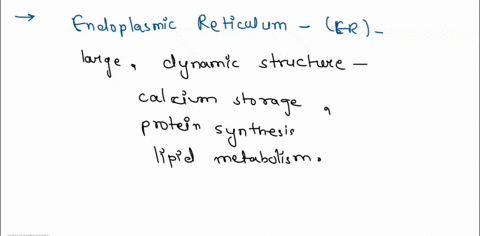 → Endoplasmic Reticulum - (ER) -
large, dynamic structure -
calcium storage,
protein synthesis
lipid metabolism.